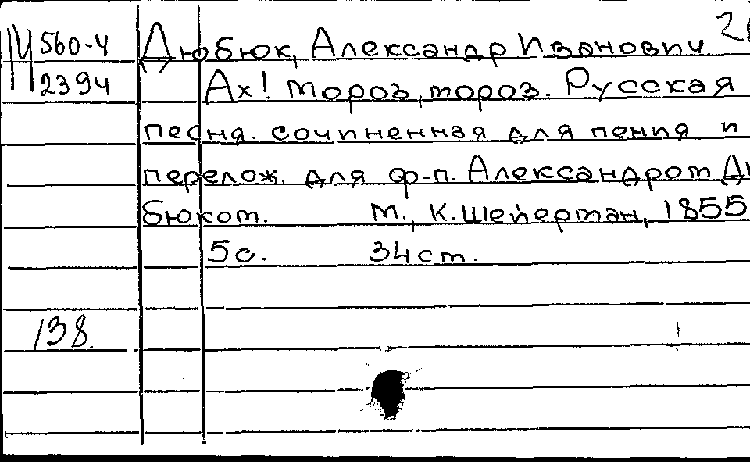 М 560-4 Дюбюк, Александр Иванович
2394 Ах! Мороз, мороз. Русская
песня. сочиненная для пения и
перелож. для ф-п. Александром Дю
бюком. М., К. Шейерман, 1855
5с. 34см.
138.